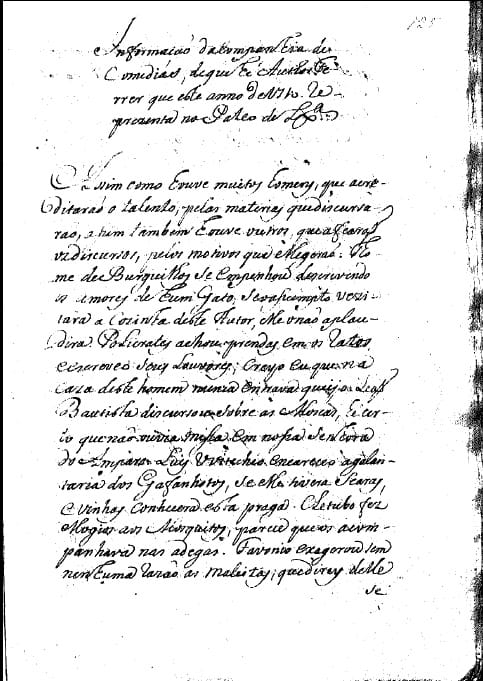 125
Informacaõ da Companhia de
Comedias, de que hé Author Fe
rrer que este anno de 1710. Re-
prezenta no Pateo de Lxª.
Assim como houve muitos homens, que acre-
ditaraõ o talento, pelas materias que discursa-
raõ, assim tambem houve outros, que
os discursos, pelos motivos que elegeraõ. Tho-
me de Burguilhos se empenhou descrevendo
os amores de hum Gato,
a deste Autor, se não aplau-
dira. Policrates achou prendas em os Ratos
e escreveo seus Louvores; Creyo eu que na
caza deste homem nunca entrava queijo. Leaõ
Bautista discursou sobre as Moscas, hé cer-
to que naõ ouvia missa em nossa Senhora
do Amparo. Luiz encareceo a galan-
taria dos Gafanhotos, se elle tivera Searas,
e vinhas conhecera esta praga. fez
elogios aos Mosquitos, parece que os acom-
panhava nas adegas. Favorino exagerou sem
nenhuma razaõ as maleitas; que direy delle
se